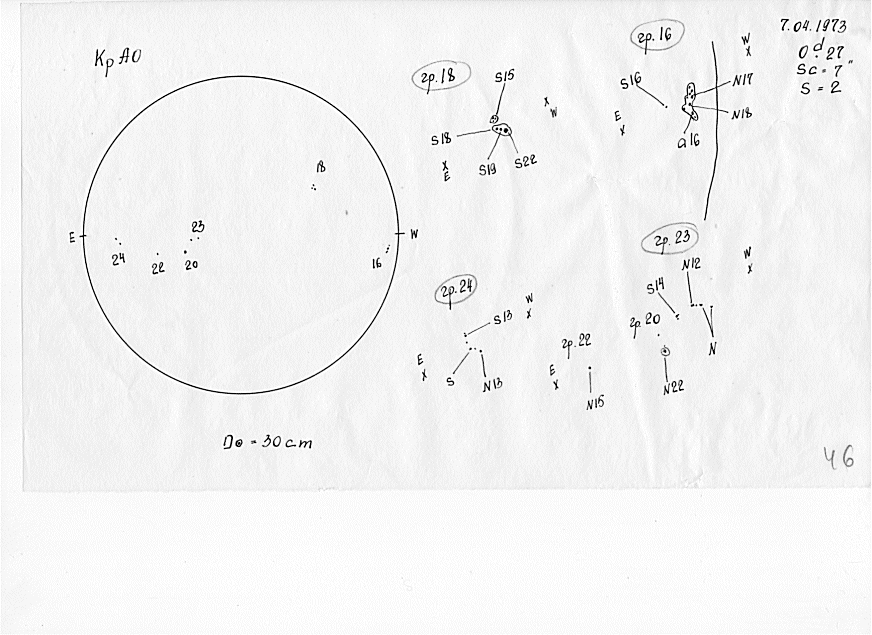 КрАО
7.04.1973
0ᵈ.27
Sc = 7"
S = 2
E
W
18
23
24
22
20
16
D⊙ = 30 cm
гр.18
S15
S18
S19
S22
W
E
гр.16
S16
N17
N18
α16
E
W
гр.24
S13
S
N13
E
W
гр.22
N15
E
гр.23
N12
S14
гр.20
N
N22
W
46